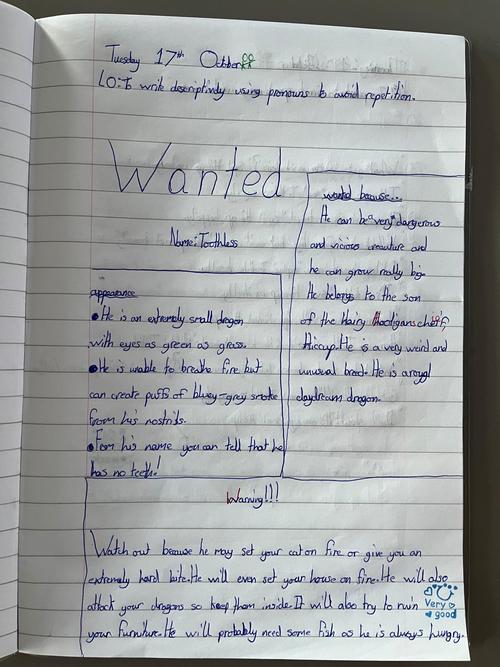 Tuesday 17th October
LO: To write descriptively using pronouns to avoid repetition.
Wanted
Name: Toothless
appearance
• He is an extremely small dragon
with eyes as green as grass.
• He is unable to breathe fire but
can create puffs of bluey-grey smoke
from his nostrils.
• From his name you can tell that he
has no teeth!
wanted because...
He can be a very dangerous
and vicious creature and
he can grow really big.
He belongs to the son
of the Hairy Hooligans chief,
Hiccup. He is a very weird and
unusual breed. He is a
daydream dragon.
Warning!!!
Watch out because he may set your cat on fire or give you an
extremely hard bite. He will even set your house on fire. He will also
attack your dragons so keep them inside. It will also try to ruin
your furniture. He will probably need some fish as he is always hungry.
Very
good